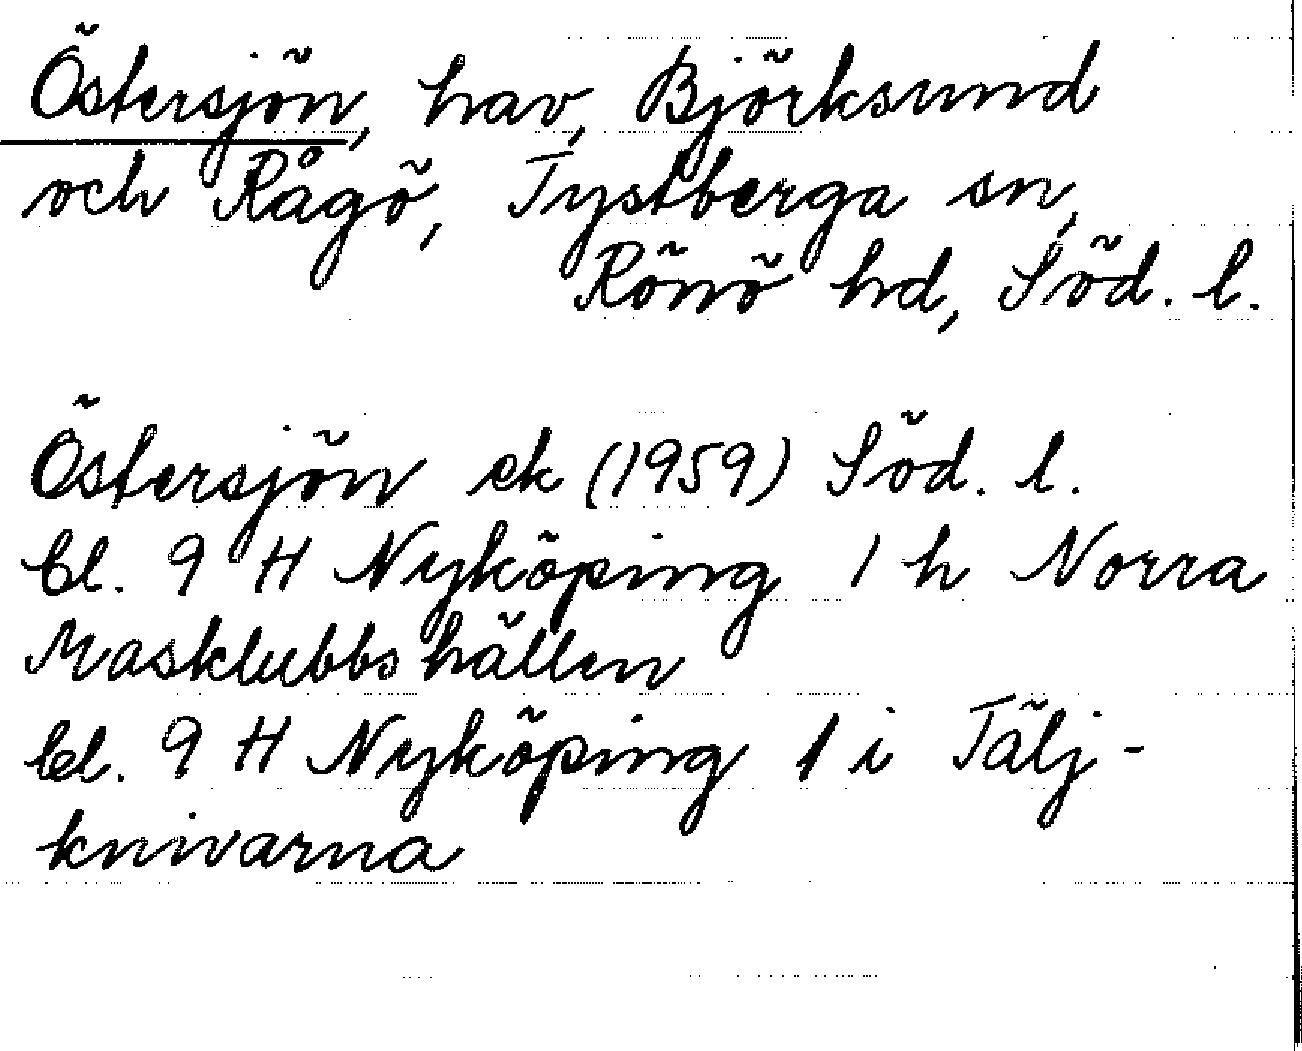 Östersjön, hav, Björksund
och Rågö, Tystberga sn,
Rönö hd, Söd. l.
Östersjön ek (1959) Söd. l.
bl. 9 H Nyköping 1 h Norra
Masklubbshällen
bl. 9 H Nyköping 1 i Tälj-
knivarna